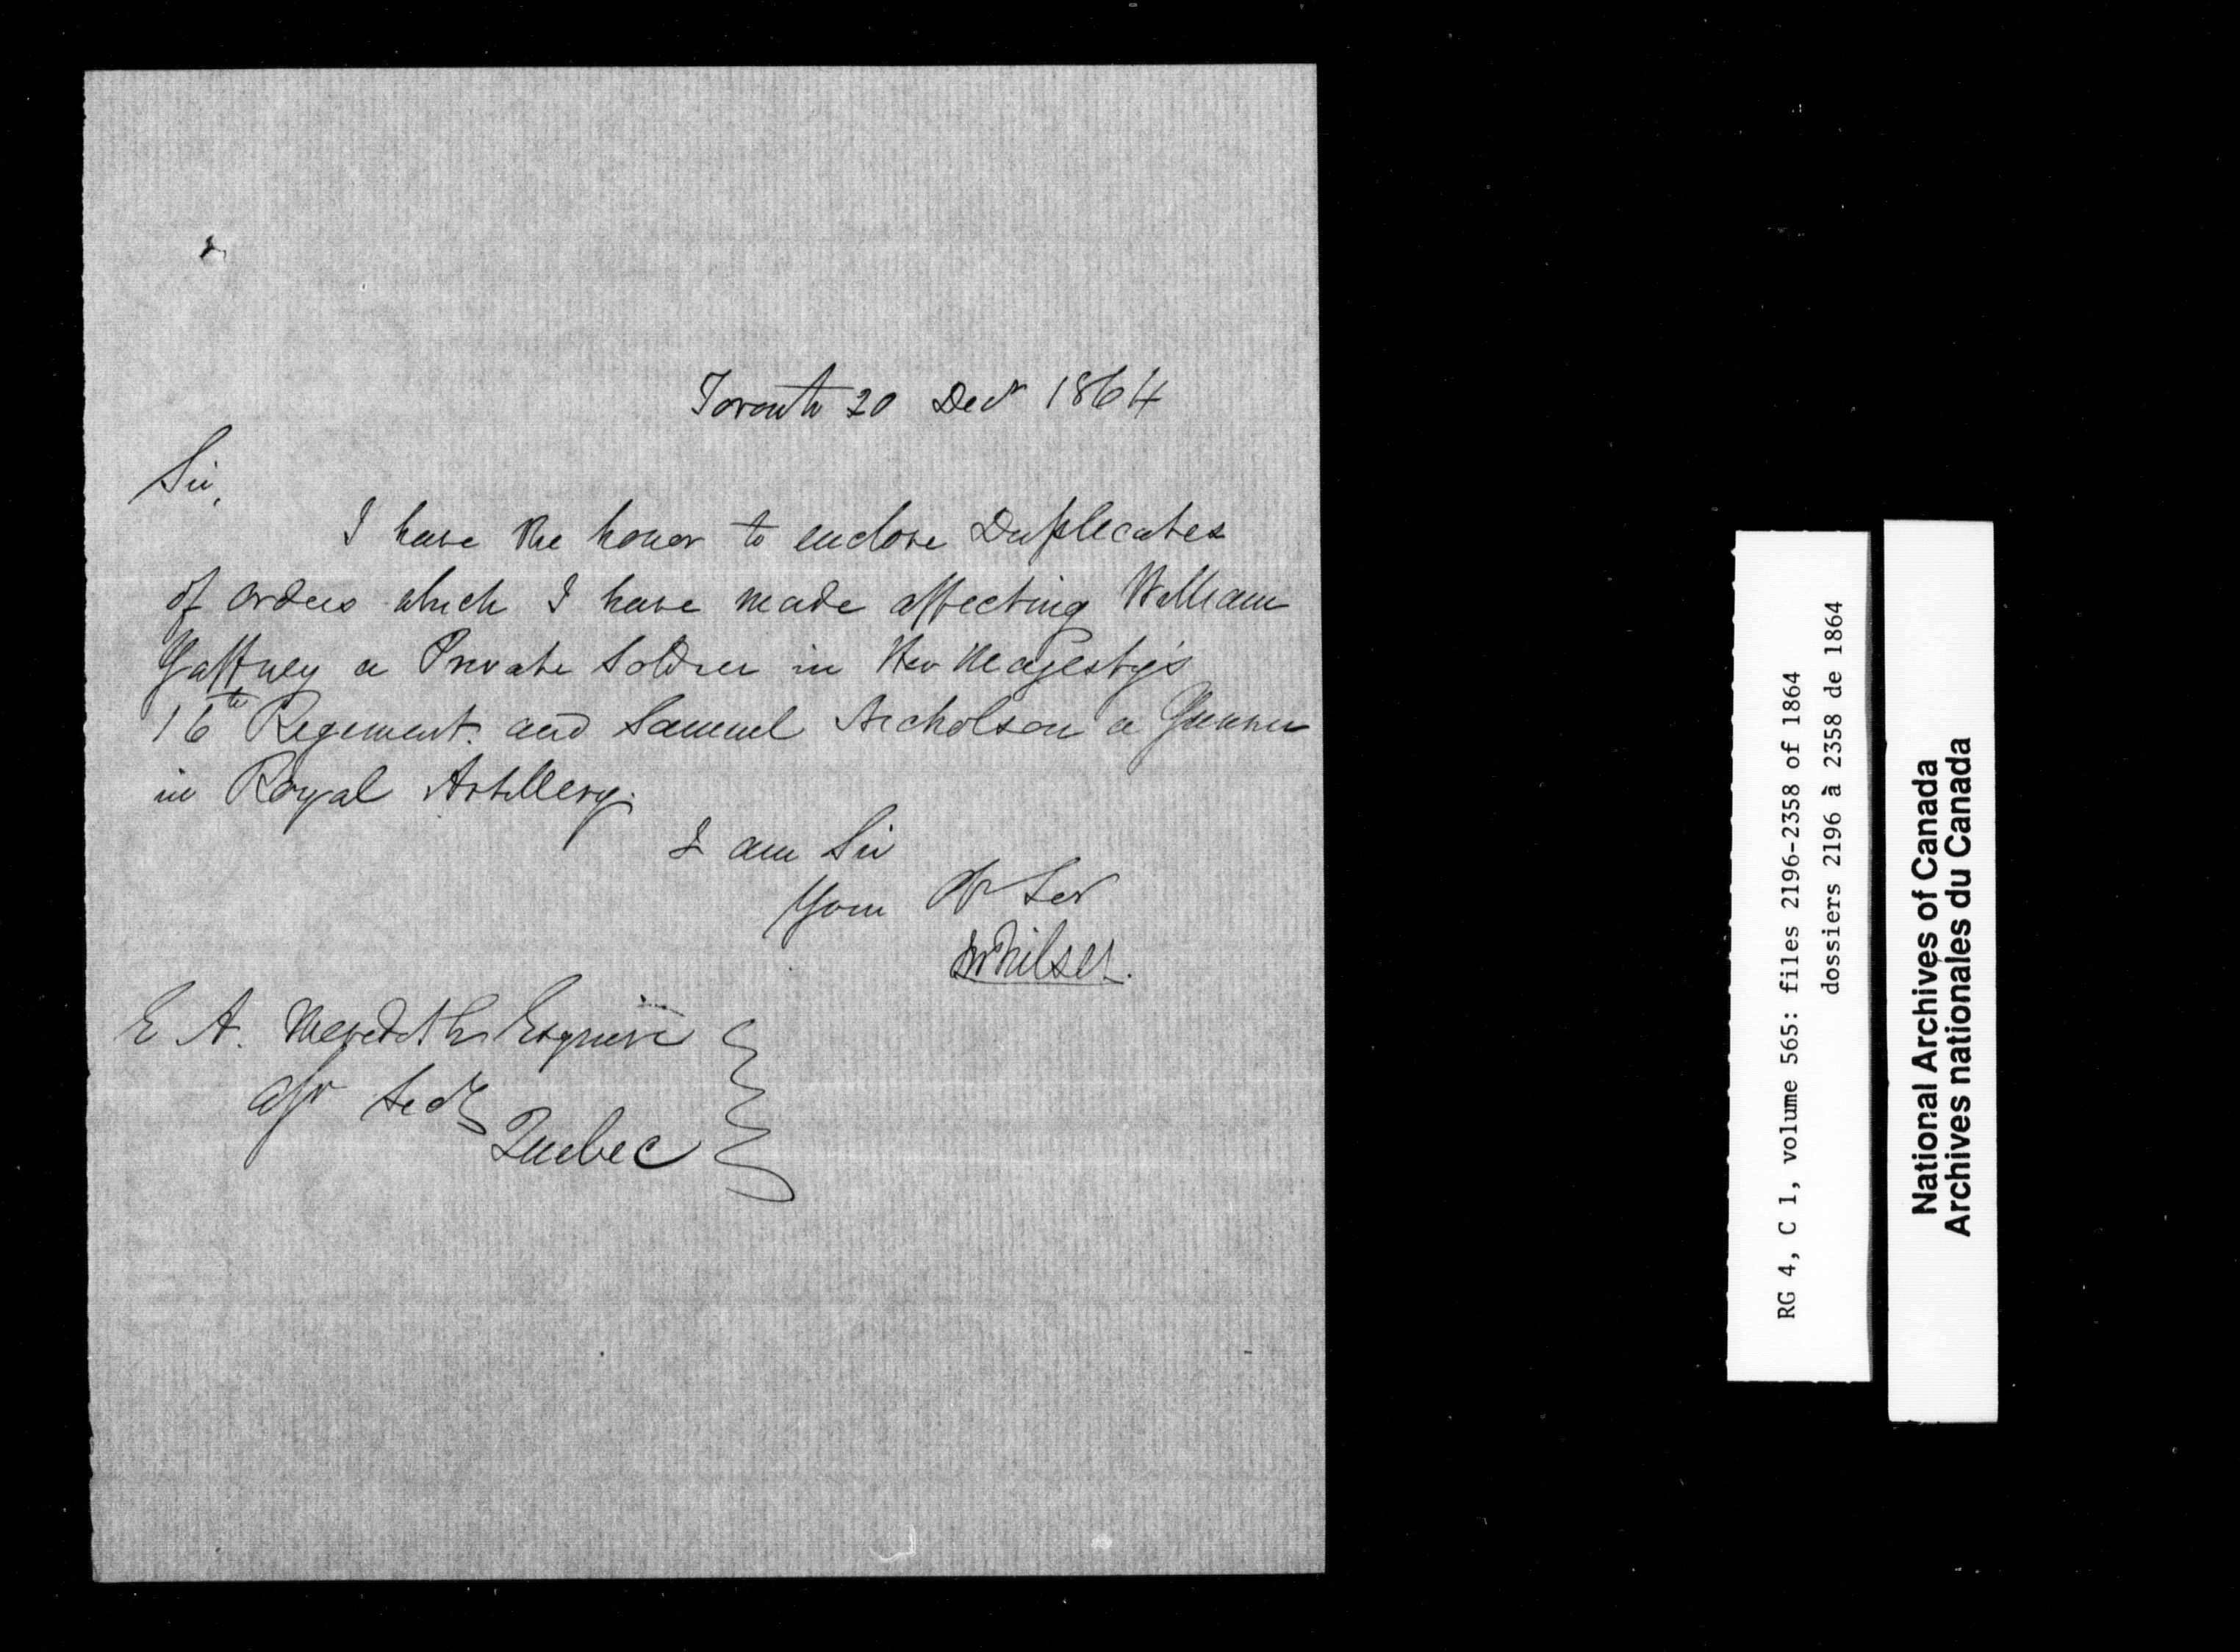 Toronto 20 Decr 1864
Sir,
I have the honor to enclose Duplicates
of orders which I have made affecting William
Gaffney a Private Soldier in Her Majesty's
16th Regiment. and Samuel Nicholson a Gunner
in Royal Artillery.
I am Sir
Your Ob Ser
E A. Meredith Esquire
Asst Secy
Quebec
RG 4, C 1, volume 565: files 2196-2358 of 1864
dossiers 2196 à 2358 de 1864
National Archives of Canada
Archives nationales du Canada